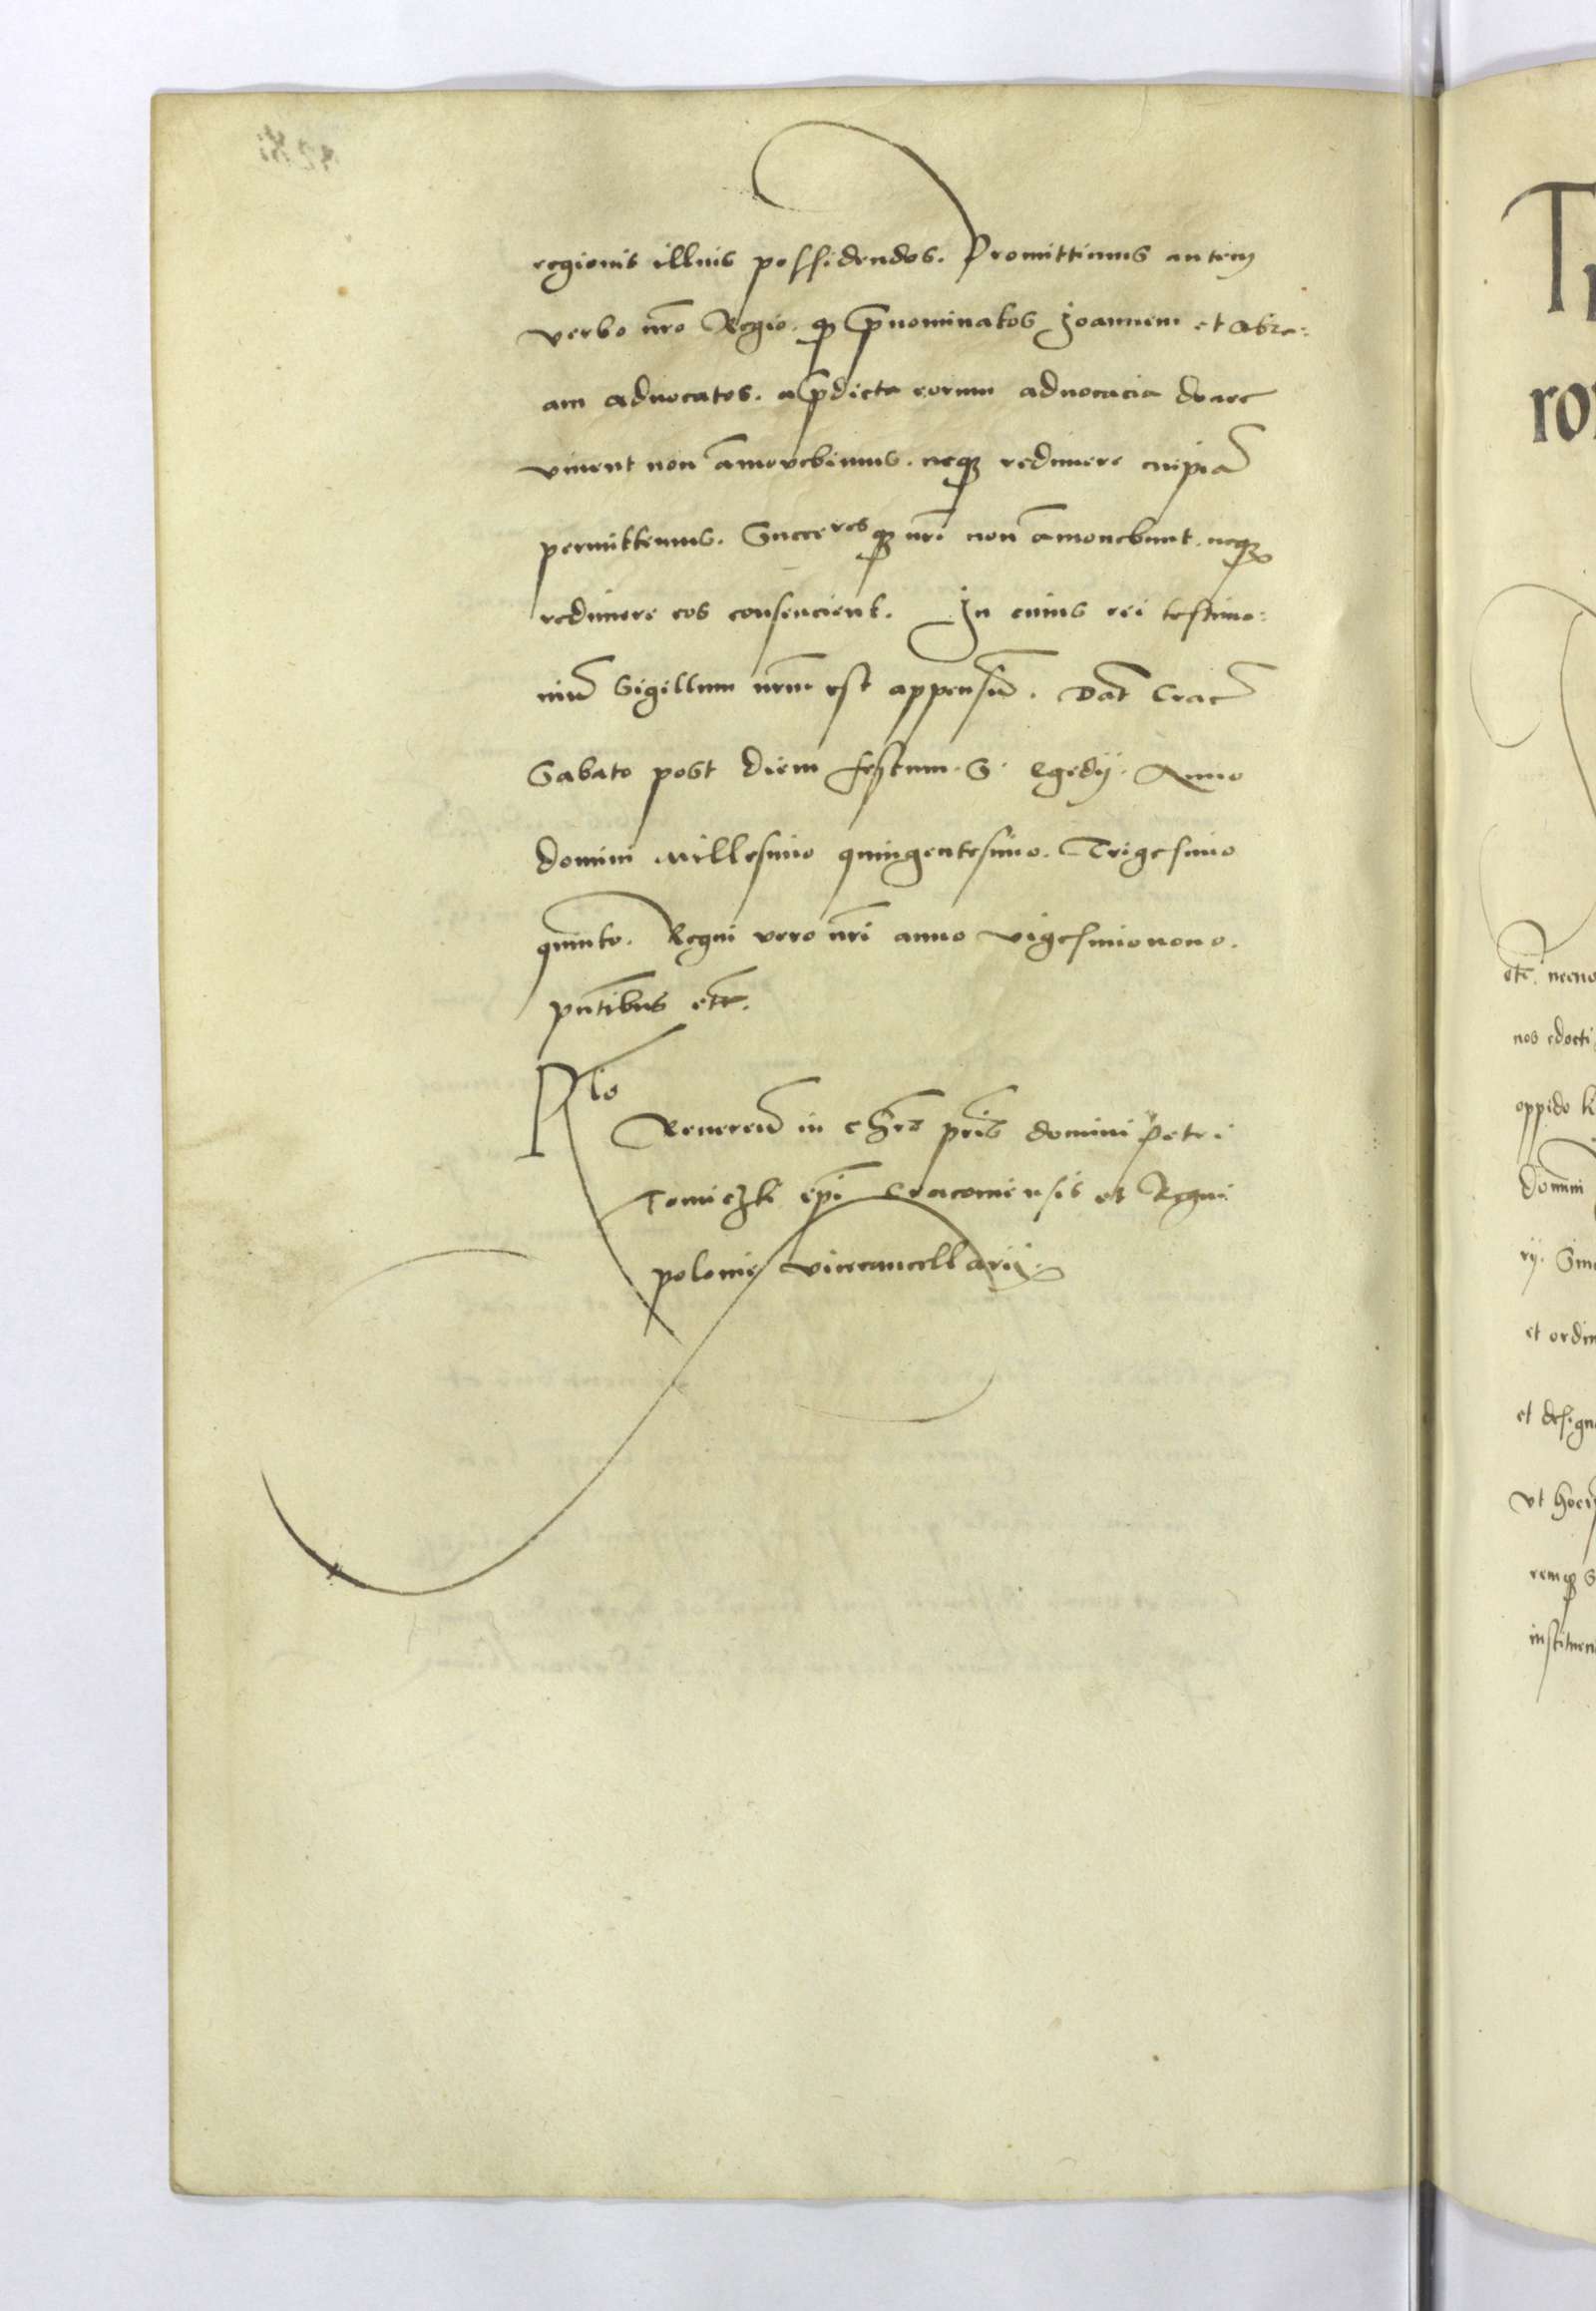 regionis illius possidendos. Promittimus autem
verbo nro Regio. q prnominatos Joannem et Abra:
am aduocatos. a prdicta eorum aduocacia donec
viuent non amouebimus. neq redimere cuipia
permittemus. Succeresq nri non amouebunt. neq
redimere eos consencient. In cuius rei testimo:
niu Sigillum nrm est appensu. Dat Crac
Sabato post diem festum. S. Egedij. Anno
domini Millesimo quingentesimo. Trigesimo
quinto. Regni vero nri anno vigesimonono.
pntibus etc.
Rlo
Reuereu in chro pris domini Petri
Tomiczki epi Cracouiensis et Regni
polonie vicecancellarij.
T
ro
etc. necno
nos edocti
oppido k
domini
rij.
et ordin
et design
vt
remq s
instituen